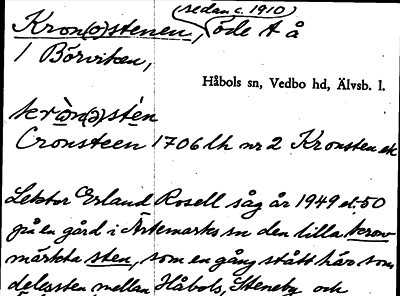 (sedan c. 1910)
Kron(o)stenen, öde t å
1 Börviken,
Håbols sn, Vedbo hd, Älvsb. l.
kròn(ə)stén
Cronsteen 1706 lh nr 2 Kronsten etc
Lektor Erland Rosell såg år 1949 el. 50
på en gård i Ärtemarks sn den lilla kron-
märkta sten, som en gång stått här som
delessten mellan Håbols, Steneby och